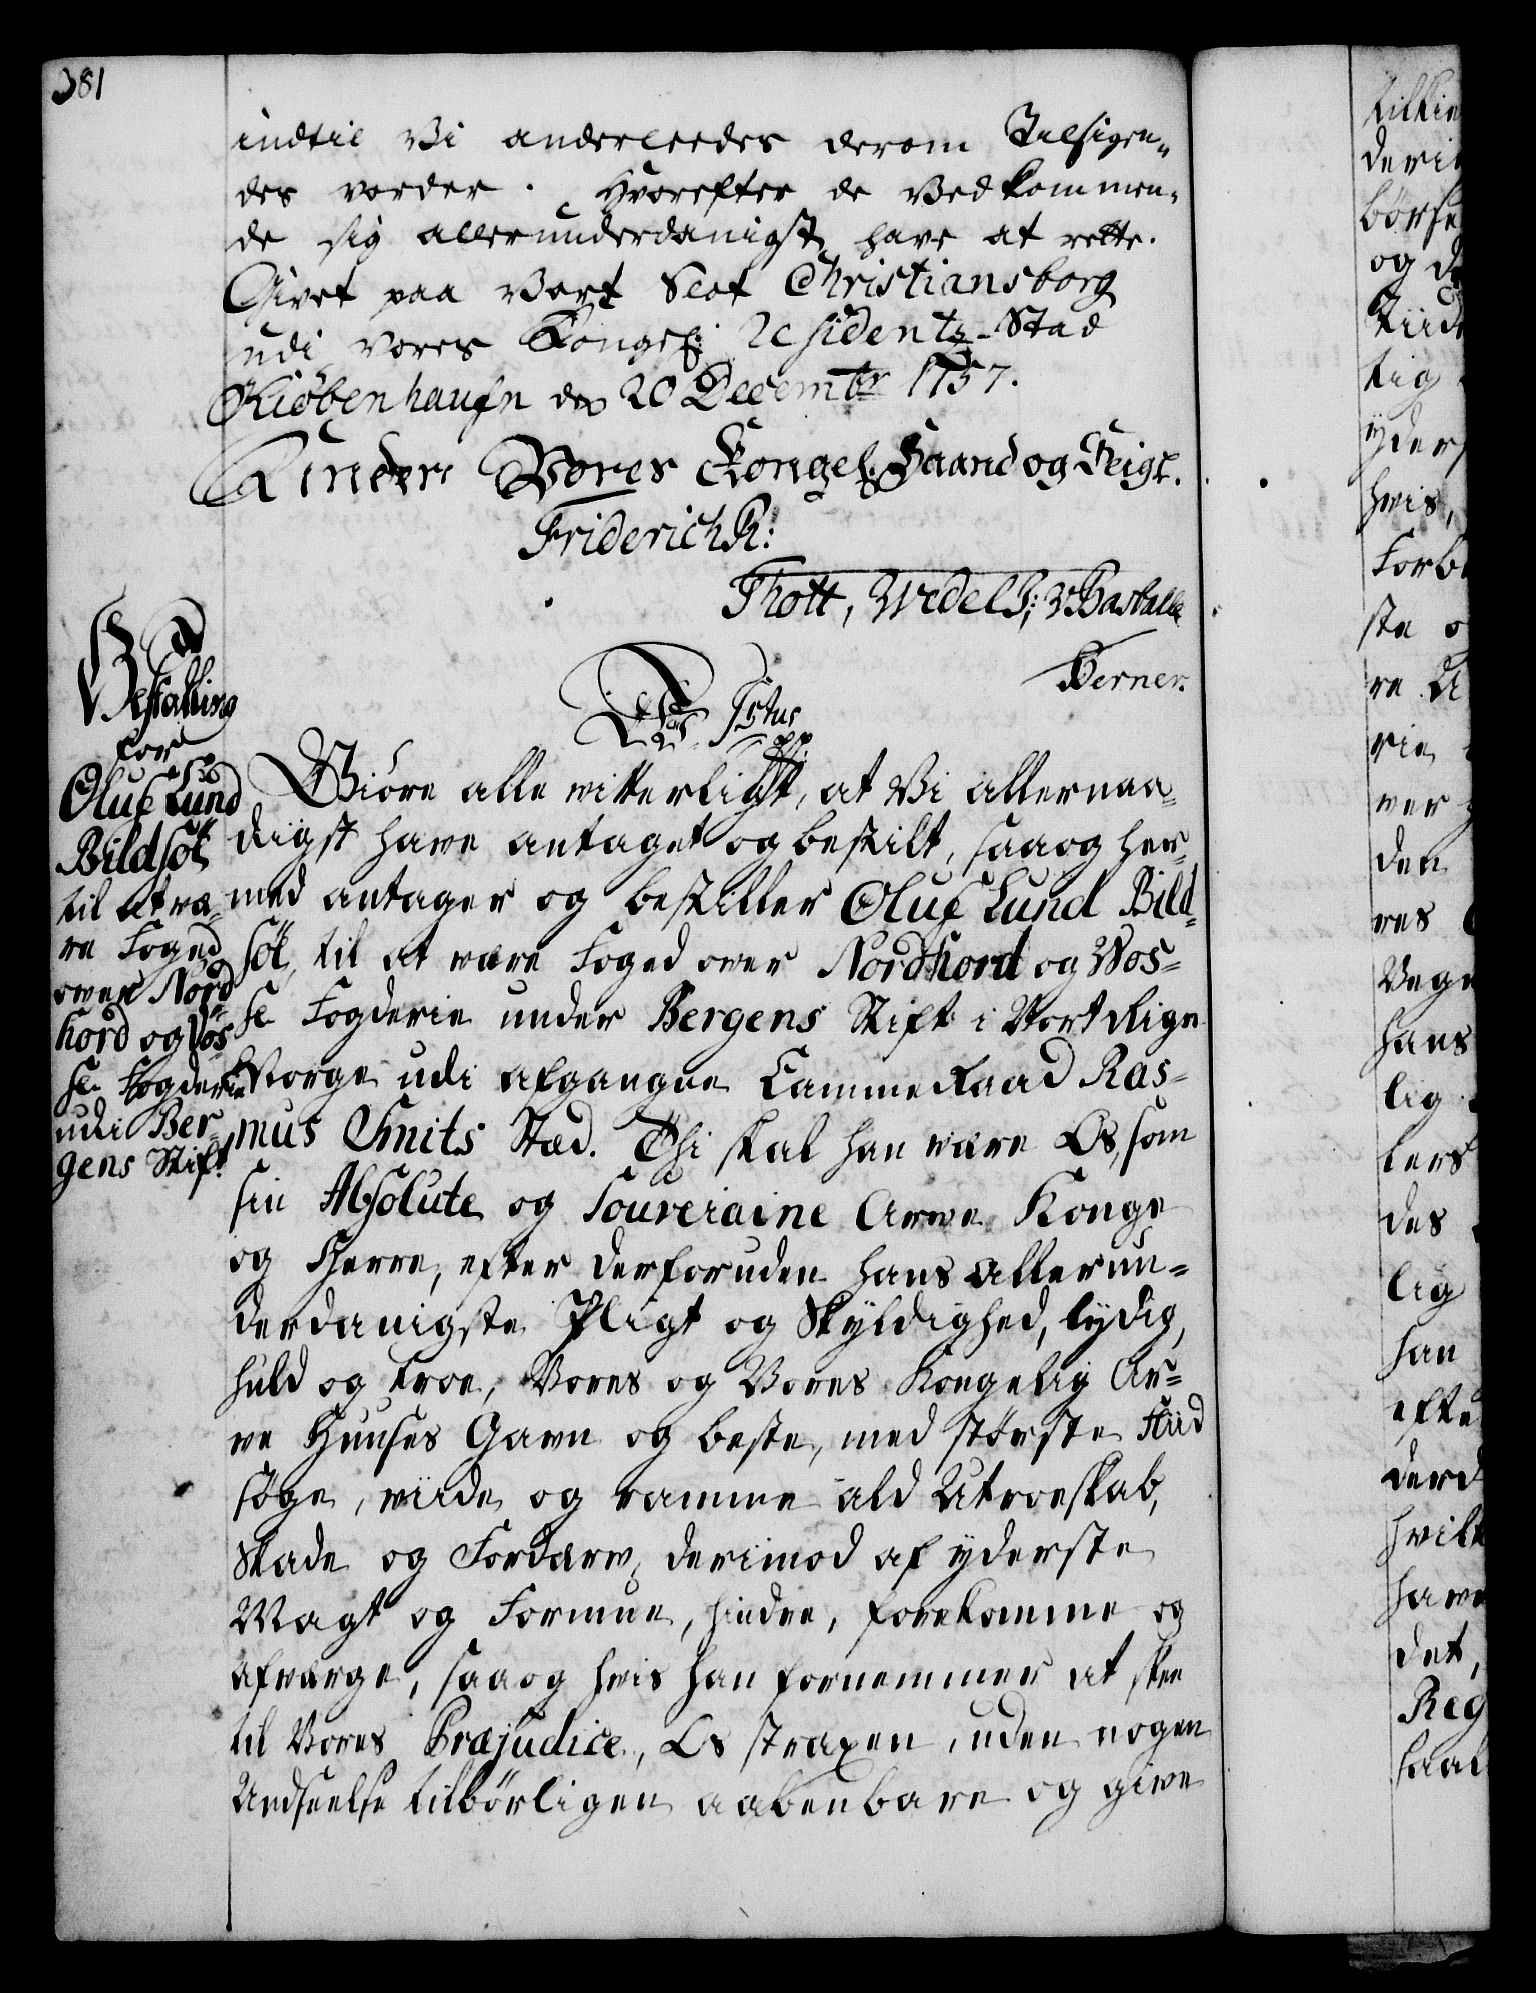 381
indtil Vi anderleedes derom Tilsigen-
des vorder. Hvorefter de Vedkommen-
de sig allerunderdanigst have at rette.
Givet paa Vort Slot Christiansborg
udi Vores Kongel: Residentz-Stad
Kiøbenhaufn den 20 Decembr 1757.
Under Vores Kongel: Haand og Seigl.
Friderich R:
Thott, Wedel J:, v Bashalle
Berner.
Bestalling
for
Oluf Lund
Bildsøe
til at væ-
re Foged
over Nord
hord og Vos-
se Fogderie
udi Ber-
gens Stift.
F 5tus
Giøre alle witterligt, at Vi allernaa-
digst have antaget og bestilt, saa og her-
med antager og bestiller Oluf Lund Bild-
søe, til at være Foged over Nordhord og Wos-
se Fogderie under Bergens Stift i Vort Rige
Norge udi afgangne Cammerraad Ras-
mus Smits Stæd. Thi skal han være Os, som
sin Absolute og Souveraine Arve Konge
og Herre, efter derforuden hans allerun-
derdanigste Pligt og Skyldighed, lydig,
huld og troe, Vores og Vores Kongelig Ar-
ve Huuses Gavn og beste, med største Fliid
søge, viide og ramme ald Utroeskab,
Skade og Fordærv, derimod af yderste
Magt og Formue, hindre, forekomme og
afværge, saa og hvis han fornemmer at skee
til Vores Præjudice, Os straxen, uden nogen
Undseelse tilbørligen aabenbare og give